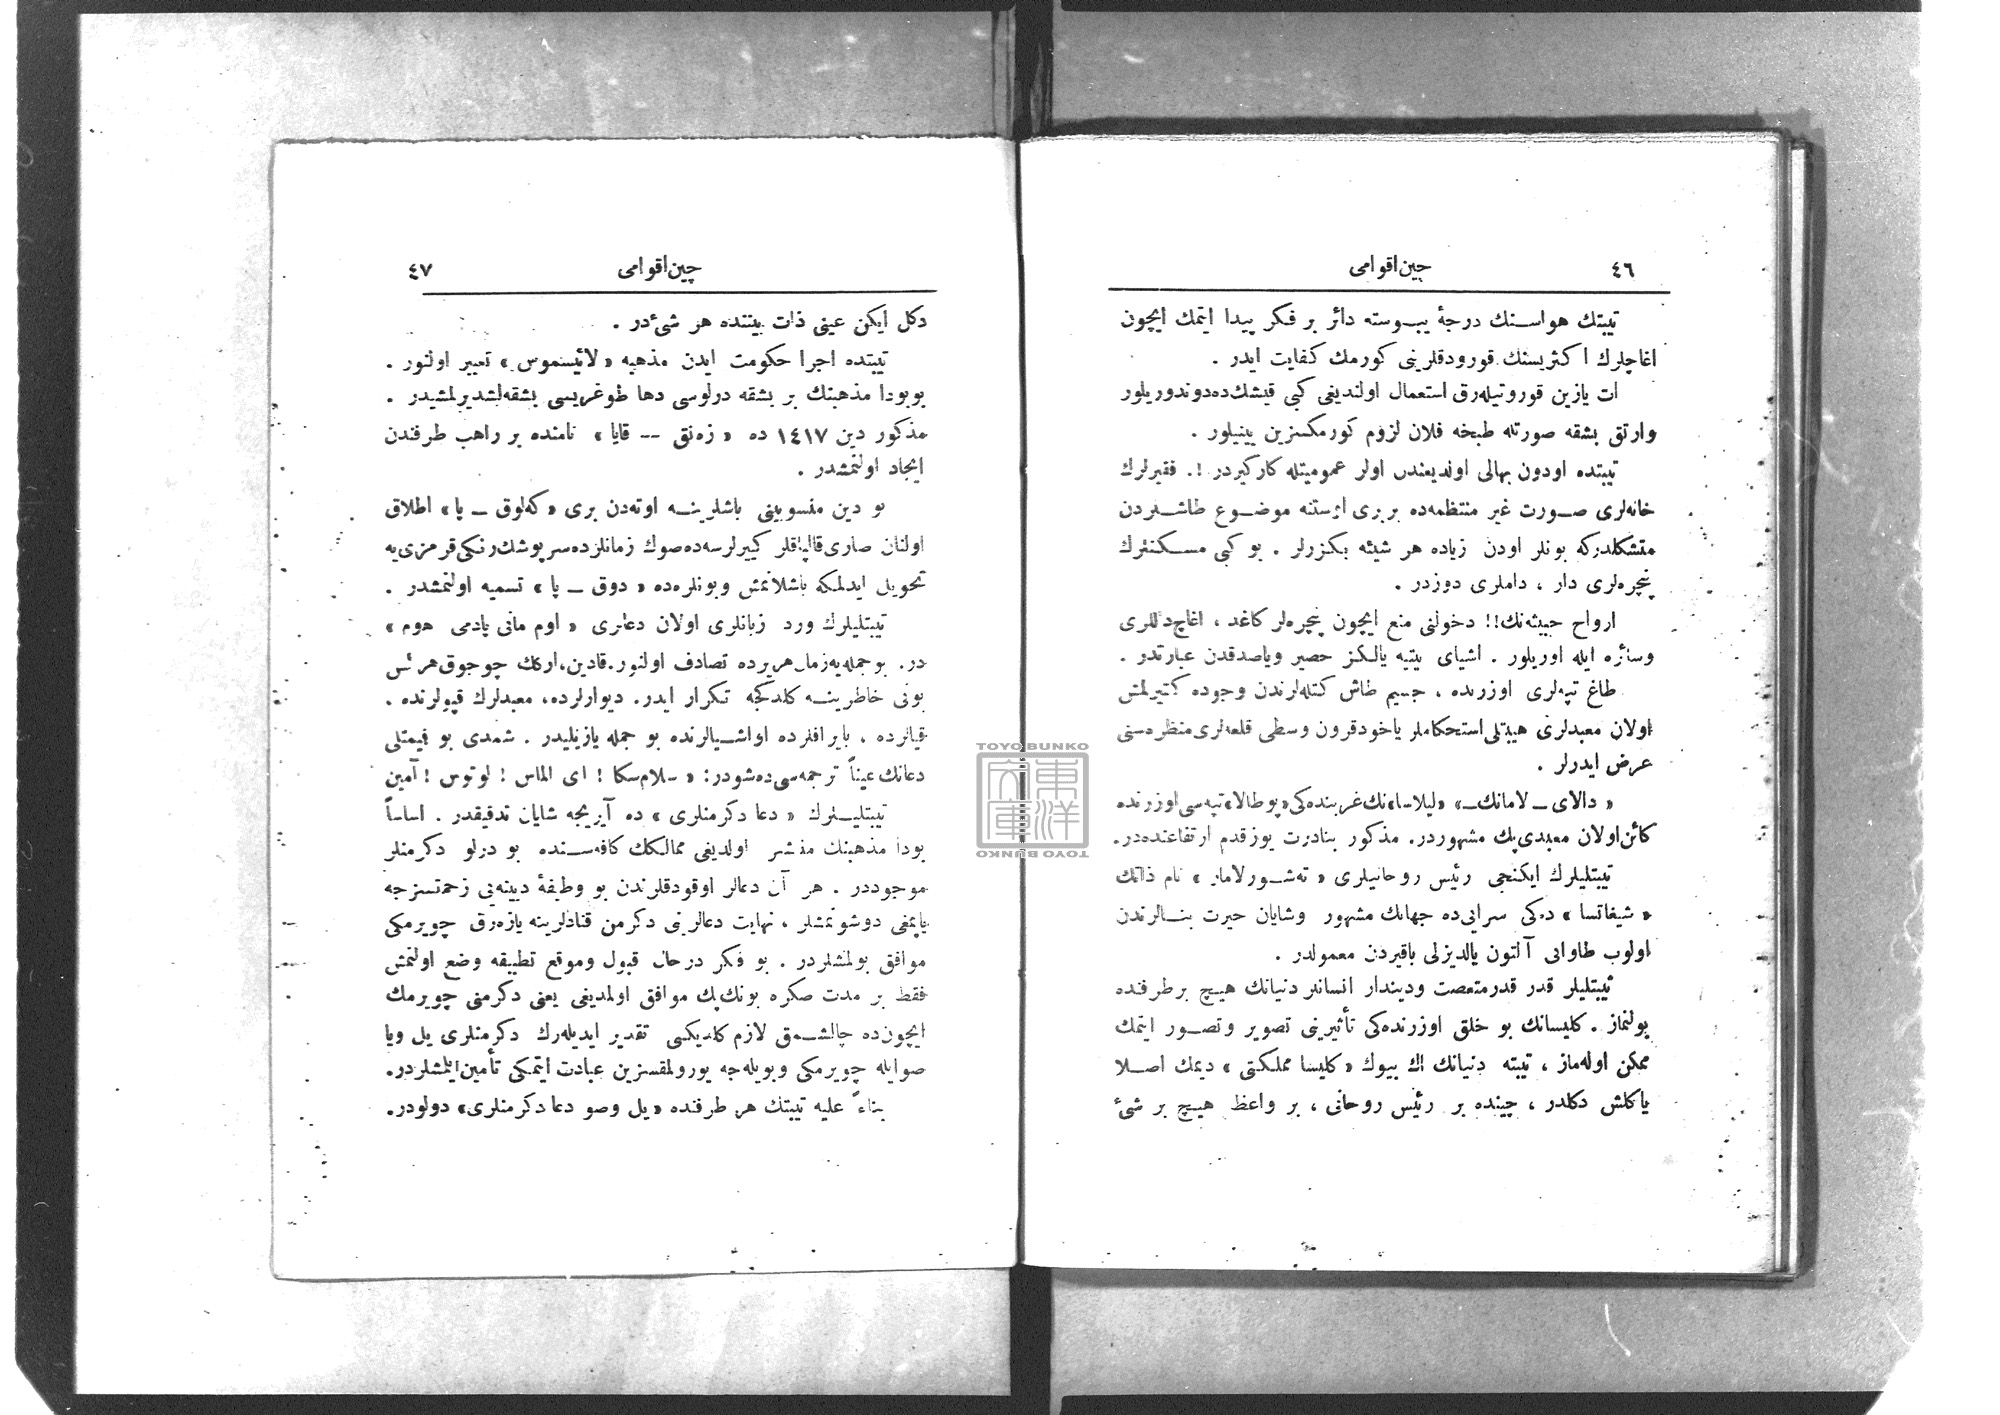 ٤٦ چین اقوامی
تیبتك هواسنك درجهٔ یبوسته دائر بر فكر پیدا ایتمك ایچون
اغاچلرك اكثریسنك قورودقلرینی كورمك كفایت ایدر .
ات یازین قوروتیله‌رق استعمال اولندیغی كبی قیشك‌ده‌دوندوریلور
وارتق بشقه صورتله طبخه فلان لزوم كورمكسزین ینیلور .
تیبتده اودون بهالی اولدیغندن اولر عمومیتله كاركیردر !. فقیرلرك
خانه‌لری صورت غیر منتظمه‌ده بربری اوستنه موضوع طاشلردن
متشكلدركه بونلر اودن زیاده هر شیئه بكزرلر . بو كبی مسكنلرك
پنجره‌لری دار ، داملری دوزدر .
ارواح خبیثه‌نك!! دخولنی منع ایچون پنجره‌لر كاغد ، اغاچ‌داللری
وسائره ایله اوریلور . اشیای بیتیه یالكز حصیر ویاصدقدن عبارتدر .
طاغ تپه‌لری اوزرنده ، جسیم طاش كتله‌لرندن وجوده كتیرلمش
اولان معبدلری هیبتلی‌استحكاملر یاخودقرون وسطی قلعه‌لری‌منظره‌سنی
عرض ایدرلر .
« دالای ـ لامانك ـ» «لیلاسا»نك‌غربنده‌كی«پوطالا»تپه‌سی‌اوزرنده
كائن‌اولان معبدی‌پك مشهوردر. مذكور بنادرت یوزقدم ارتفاعنده‌در.
تیبتلیلرك ایكنجی رئیس روحانیلری « ته‌شورلامار » نام ذاتك
« شیغاتسا » ده‌كی سرایی‌ده جهانك مشهور وشایان حیرت بنالرندن
اولوب طاوانی آلتون یالدیزلی باقیردن معمولدر .
تیبتلیلر قدر قدرمتعصب ودیندار انسانلر دنیانك هیچ برطرفنده
بولنماز . كلیسانك بو خلق اوزرنده‌كی تأثیرینی تصویر وتصور ایتمك
ممكن اوله‌ماز ، تیبته دنیانك اك بیوك «كلیسا مملكتی» دیمك اصلا
یاكلش دكلدر ، چینده بر رئیس روحانی ، بر واعظ هیچ بر شیء
چین اقوامی ٤٧
دكل ایكن عینی ذات بیتنده هر شیءدر .
تیبتده اجرا حكومت ایدن مذهبه «لائیسموس» تعبیر اولنور .
بوبودا مذهبنك بر بشقه درلوسی دها طوغریسی بشقه‌لشدیرلمشیدر .
مذكور دین ١٤١٧ ده « زه‌نق -- قاپا» نامنده بر راهب طرفندن
ایجاد اولنمشدر .
بو دین منسوبینی باشلرینه اوته‌دن بری «كه‌لوق ـ پا» اطلاق
اولنان صاری‌قالپاقلر كییرلرسه‌ده‌صوك زمانلرده‌سرپوشك‌رنكی‌قرمزی‌یه
تحویل ایدلمكه باشلانمش وبونلره‌ده « دوق ـ پا» تسمیه اولنمشدر .
تیبتلیلرك ورد زبانلری اولان دعالری « اوم مانی پادمی هوم »
در. بوجمله‌یه‌زمان‌هریرده تصادف اولنور.قادین،اركك چوجوق‌هركس
بونی خاطرینه كلدكجه تكرار ایدر. دیوارلرده، معبدلرك قپولرنده .
قیالرده ، بایراقلرده اواشیالرنده بو جمله یازیلیدر . شمدی بو قیمتلی
دعانك‌عیناً ترجمه‌سی‌ده‌شودر: « سلام‌سكا ! ای الماس ! لوتوس ! آمین
تیبتلیلرك « دعا دكرمنلری » ده آیریجه شایان تدقیقدر . اساساً
بودا مذهبنك منتشر اولدیغی ممالكك كافه‌سنده بو درلو دكرمنلر
موجوددر . هر آن دعالر اوقودقلرندن بو وظیفهٔ دینیه‌یی زحمتسزجه
یاپمغی دوشونمشلر ، نهایت دعالرینی دكرمن قنادلرینه یازه‌رق چویرمكی
موافق بولمشلردر . بو فكر درحال قبول وموقع تطبیقه وضع اولنمش
فقط بر مدت صكره بونك‌پك موافق اولمدیغی یعنی دكرمنی چویرمك
ایچون‌ده چالشمق لازم كلدیكنی تقدیر ایدیله‌رك دكرمنلری یل ویا
صوایله چویرمكی وبویله‌جه یورولمقسزین عبادت ایتمكی تأمین‌ایلمشلردر.
بناءً علیه تیبتك هر طرفنده «یل وصو دعا دكرمنلری» دولودر.
TOYO BUNKO
東洋文庫
TOYO BUNKO